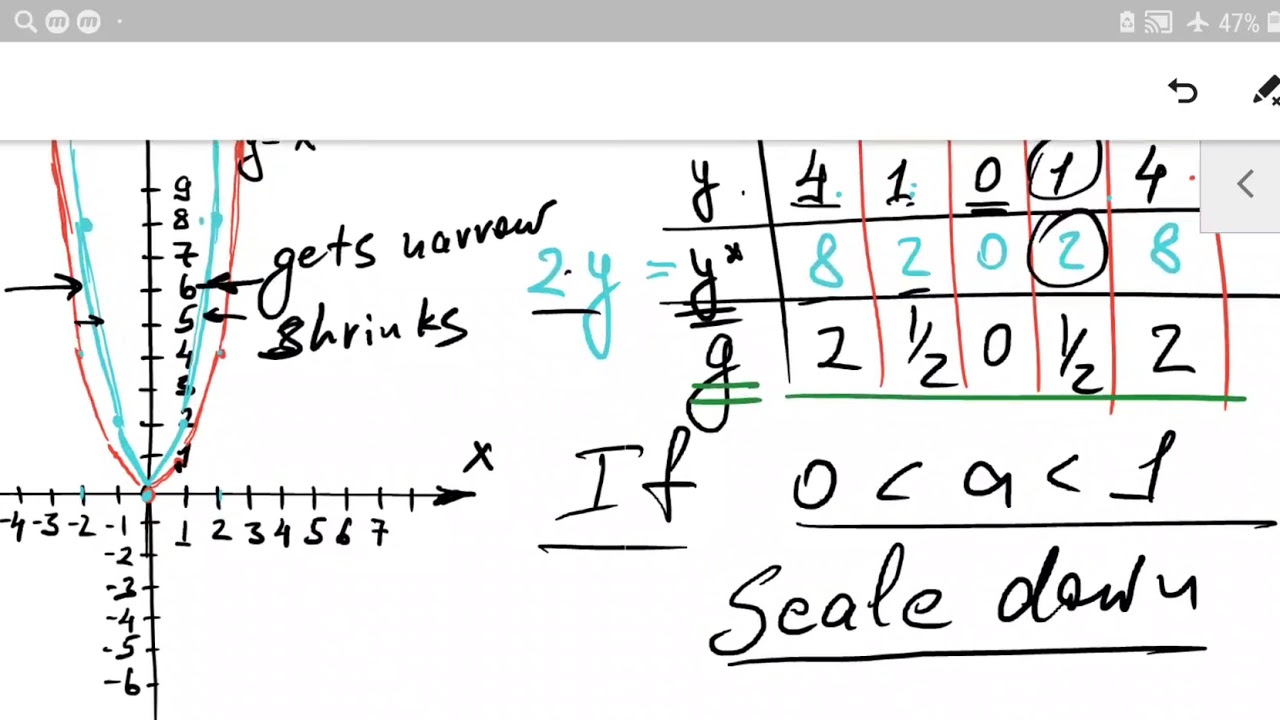 47%
y=x
9
8
7
6
5
4
3
2
1
gets narrow
shrinks
2·y = y*
y 4 1 0 1 4
8 2 0 2 8
g 2 1/2 0 1/2 2
If 0 < a < 1
Scale down
x
-4 -3 -2 -1 1 2 3 4 5 6 7
-2
-3
-4
-5
-6